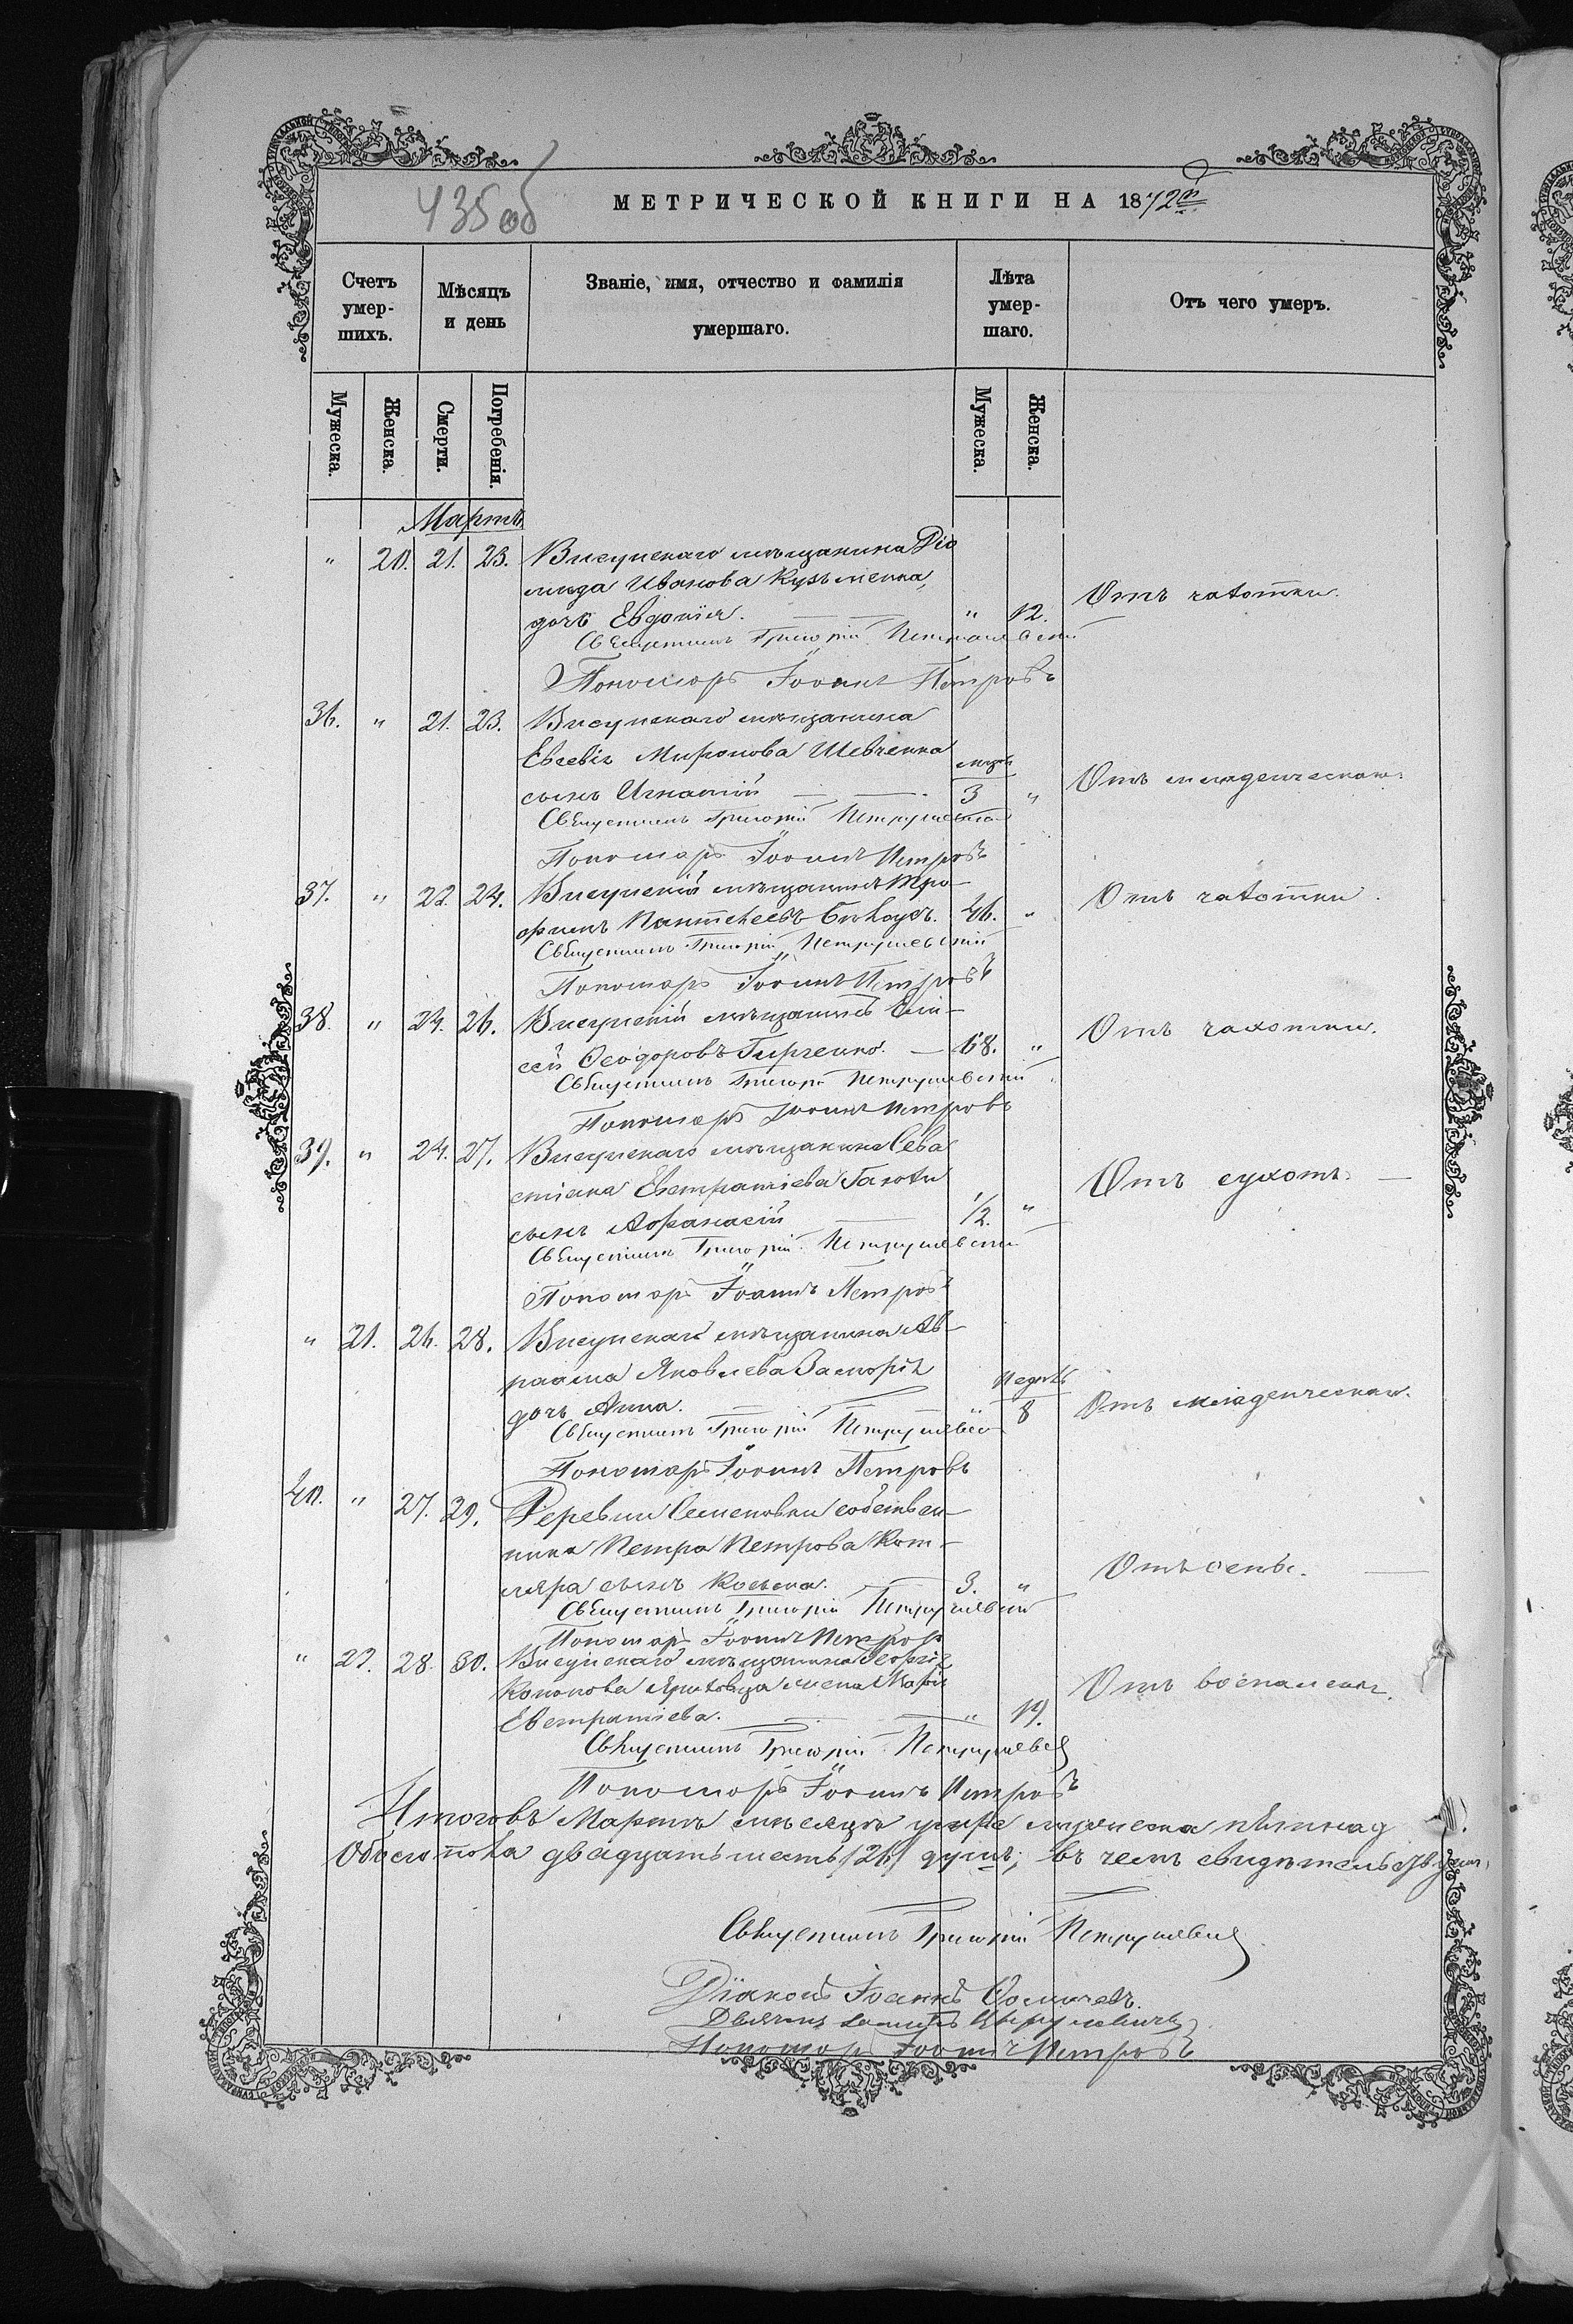 435 об
МЕТРИЧЕСКОЙ КНИГИ НА 1872 й
Счетъ умер-шихъ.
Мѣсяцъ и день
Званіе, имя, отчество и фамилія умершаго.
Лѣта умер-шаго.
Отъ чего умеръ.
Мужеска.
Женска.
Смерти.
Погребенія.
Мужеска.
Женска.
Мартъ
" 20. 21. 23. Висунскаго мѣщанина Діо
мида Иванова Кузьменка,
дочь Евдокія. " 12. Отъ чахотки.
Священникъ Григорій Петрушевскій
Пономарь Іоаннъ Петровъ
36. " 21. 23. Висунскаго мѣщанина
Евсевія Миронова Шевченка
сынъ Игнатій 3 " Отъ младенческаго
Священникъ Григорій Петрушевскій
Пономарь Іоаннъ Петровъ
37. " 22. 24. Висунскій мѣщанинъ Тро-
фимъ Пантелеевъ 46. " Отъ чахотки.
Священникъ Григорій Петрушевскій
Пономарь Іоаннъ Петровъ
38. " 24. 26. Висунскій мѣщанинъ Ели-
сей Ѳеодоровъ Гирченко. 68. " Отъ чахотки.
Священникъ Григорій Петрушевскій
Пономарь Іоаннъ Петровъ
39. " 24. 27. Висунскаго мѣщанина Сева
стіана Евстратіева
сынъ Аѳанасій 1/2. " Отъ сухотъ.
Священникъ Григорій Петрушевскій
Пономарь Іоаннъ Петровъ
" 21. 26. 28. Висунскаго мѣщанина Ав-
раама Яковлева
недѣль
дочь Анна. " 8 Отъ младенческаго.
Священникъ Григорій Петрушевскій
Пономарь Іоаннъ Петровъ
40. " 27. 29. Деревни Семеновки собствен-
ника Петра Петрова Кот-
ляра сынъ Косьма. 3. " Отъ оспы.
Священникъ Григорій Петрушевскій
Пономарь Іоаннъ Петровъ
" 22. 28. 30. Висунскаго мѣщанина Георгія
Кононова жена Марія
Евстратіева. " 19. Отъ воспаленія.
Священникъ Григорій Петрушевскій
Пономарь Іоаннъ Петровъ
Итого въ Мартѣ мѣсяцѣ умре мужеска пятнад
Обоего пола двадцать шесть /26/ душъ; въ чемъ свидѣтельствуемъ
Священникъ Григорій Петрушевскій
Діаконъ Іоаннъ
Пономарь Іоаннъ Петровъ